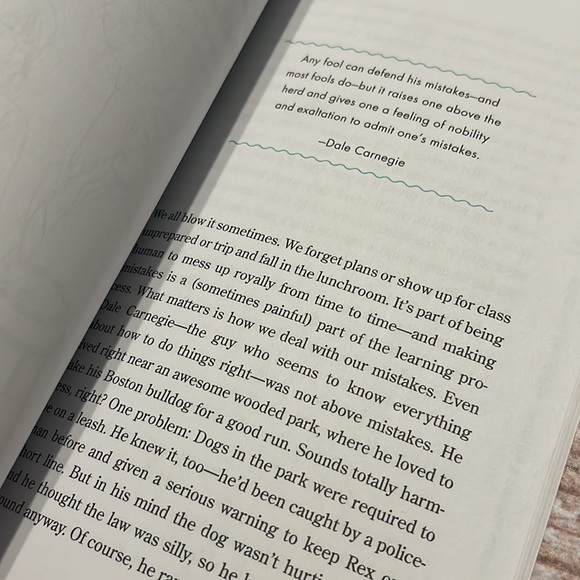 Any fool can defend his mistakes—and
most fools do—but it raises one above the
herd and gives one a feeling of nobility
and exaltation to admit one's mistakes.
—Dale Carnegie
We all blow it sometimes. We forget plans or show up for class
unprepared or trip and fall in the lunchroom. It's part of being
human to mess up royally from time to time—and making
mistakes is a (sometimes painful) part of the learning pro-
cess. What matters is how we deal with our mistakes. Even
Dale Carnegie—the guy who seems to know everything
about how to do things right—was not above mistakes. He
ved right near an awesome wooded park, where he loved to
ake his Boston bulldog for a good run. Sounds totally harm-
ess, right? One problem: Dogs in the park were required to
e on a leash. He knew it, too—he'd been caught by a police-
an before and given a serious warning to keep Rex
hort line. But in his mind the dog wasn't
nd he thought the law was silly, so he
ound anyway. Of course, he